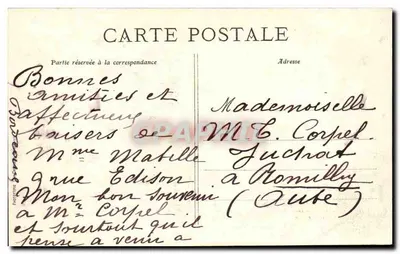 CARTE POSTALE
Partie réservée à la correspondance
Adresse
Bonnes
amities et
affectueux
baisers de
Mme Mabille
9 rue Edison
Mon bon souvenir
à Mr Corpel
et surtout qu'il
pense a venir a
Mademoiselle
M. T. Corpel
à Romilly
(Aube)